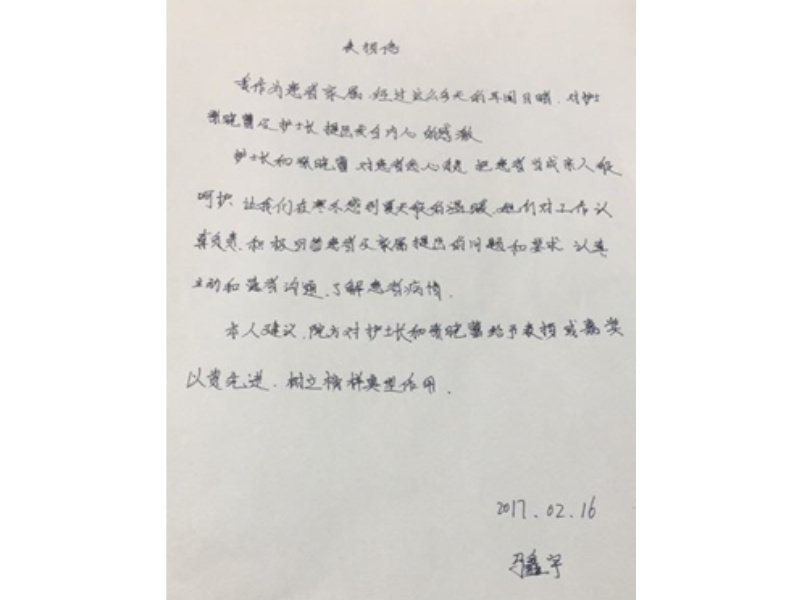 表扬信
我作为患者家属,经过这么多天的耳闻目睹,对护士
晓蕾及护士长提出发自内心的感激
护士长和晓蕾对患者悉心照, 把患者当成亲人般
呵护.让我们在寒冬感到夏天般的温暖.她们对工作认
真负责.积极明答患者及家属提出的问题和要求 认真
主动和患者沟通.了解患者病情.
本人建议.院方对护士长和晓蕾给予表扬或嘉奖
以资先进.树立榜样典型作用.
2017.02.16
马鑫宇